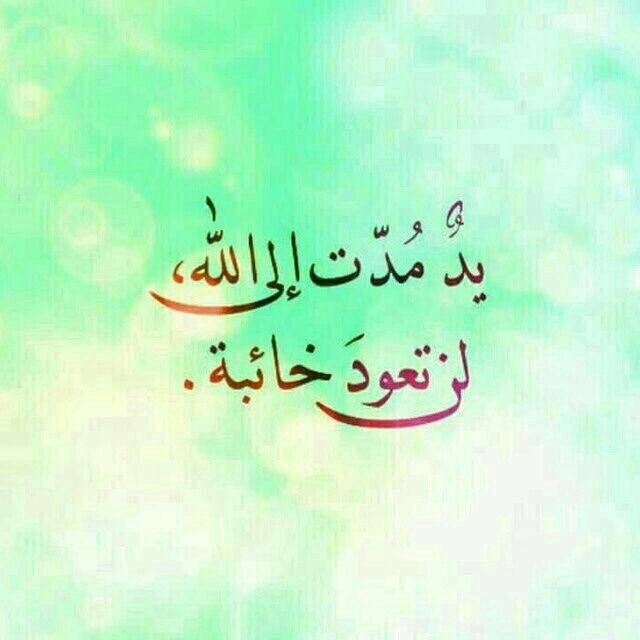 يدٌ مُدّت إلى الله،
لن تعودَ خائبة.